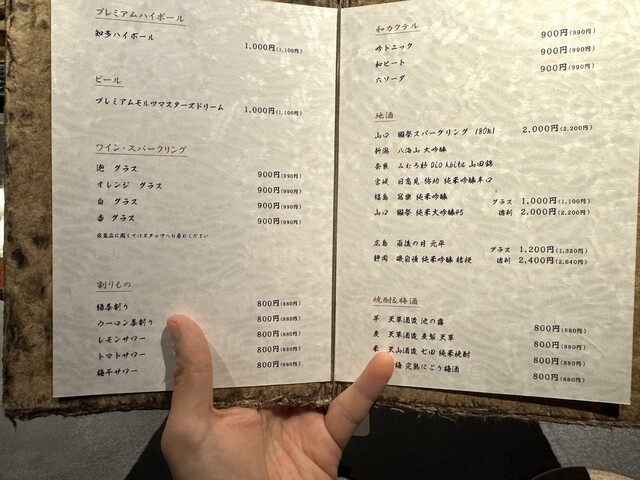 プレミアムハイボール
知多ハイボール 1,000円(1,100円)
ビール
プレミアムモルツマスターズドリーム 1,000円(1,100円)
ワイン・スパークリング
泡 グラス 900円(990円)
オレンジ グラス 900円(990円)
白 グラス 900円(990円)
赤 グラス 900円(990円)
割りもの
緑茶割り 800円(880円)
ウーロン茶割り 800円(880円)
レモンサワー 800円(880円)
トマトサワー 800円(880円)
梅干サワー 800円(880円)
和カクテル
吟トニック 900円(990円)
和ビート 900円(990円)
六ソーダ 900円(990円)
地酒
山口 獺祭スパークリング 180ml 2,000円(2,200円)
新潟 八海山 大吟醸
奈良 みむろ杉 Dio Abita 山田錦
宮城 日高見 弥助 純米吟醸辛口
福島 冩樂 純米吟醸 グラス 1,000円(1,100円)
山口 獺祭 純米大吟醸45 徳利 2,000円(2,200円)
広島 雨後の月 元卒 グラス 1,200円(1,320円)
静岡 磯自慢 純米吟醸 徳利 2,400円(2,640円)
焼酎&梅酒
芋 天草酒造 池の露 800円(880円)
麦 天草酒造 麦製 天草 800円(880円)
米 天山酒造 七田 純米焼酎 800円(880円)
梅 完熟にごり梅酒 800円(880円)